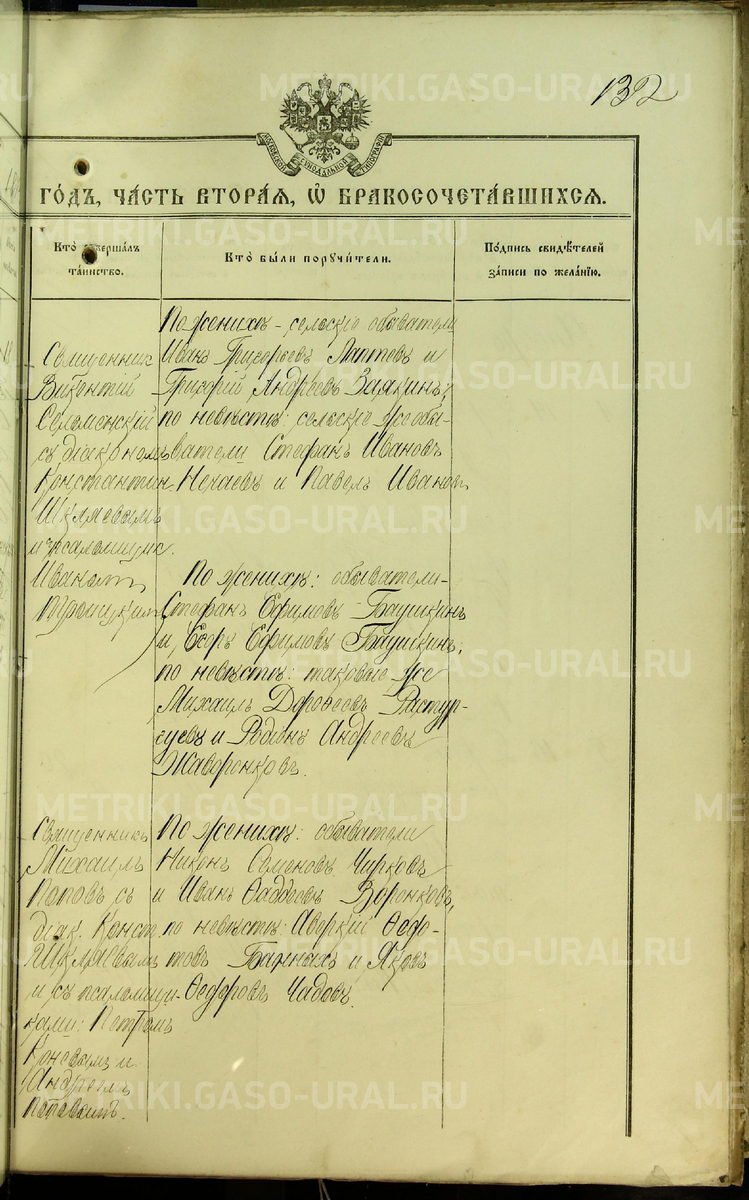 132
МОСКОВСКОЙ СѴНОДАЛЬНОЙ ТИПОГРАФІИ
ГО́ДЪ, ЧА́СТЬ ВТОРА́Я, Ѡ БРАКОСОЧЕТА́ВШИХСЯ.
Кто̀ совершалъ та́инство.
Кто̀ бы́ли поручи́тели.
По́дпись свидѣ́телей за́писи по жела́нію.
Священникъ
Викентій
Селеменскій
съ діакономъ
Константин.
Шкляевымъ
и псаломщик.
Иваномъ
По женихѣ - сельскіе обыватели
Иванъ Григорьевъ Лаптевъ и
Григорій Андреевъ Заякинъ;
по невѣстѣ: сельскіе же обы-
ватели Стефанъ Ивановъ
Нечаевъ и Павелъ Ивановъ
По женихѣ: обыватели -
Стефанъ Ефимовъ Баушкинъ
и Егоръ Ефимовъ Баушкинъ;
по невѣстѣ: таковые же
Михаилъ Дороѳеевъ Растор-
гуевъ и Родіонъ Андреевъ
Жаворонковъ.
Священникъ
Михаилъ
Поповъ съ
діак. Конст.
Шкляевымъ
и съ псаломщи-
ками: Петромъ
Коневымъ и
Андреемъ
Поповымъ.
По женихѣ: обыватели
Никонъ Семеновъ Чирковъ
и Иванъ Ѳаддеевъ Воронковъ,
по невѣстѣ: Аверкій Ѳедо-
товъ Банныхъ и Яковъ
Ѳедоровъ Чадовъ.
METRIKI.GASO-URAL.RU